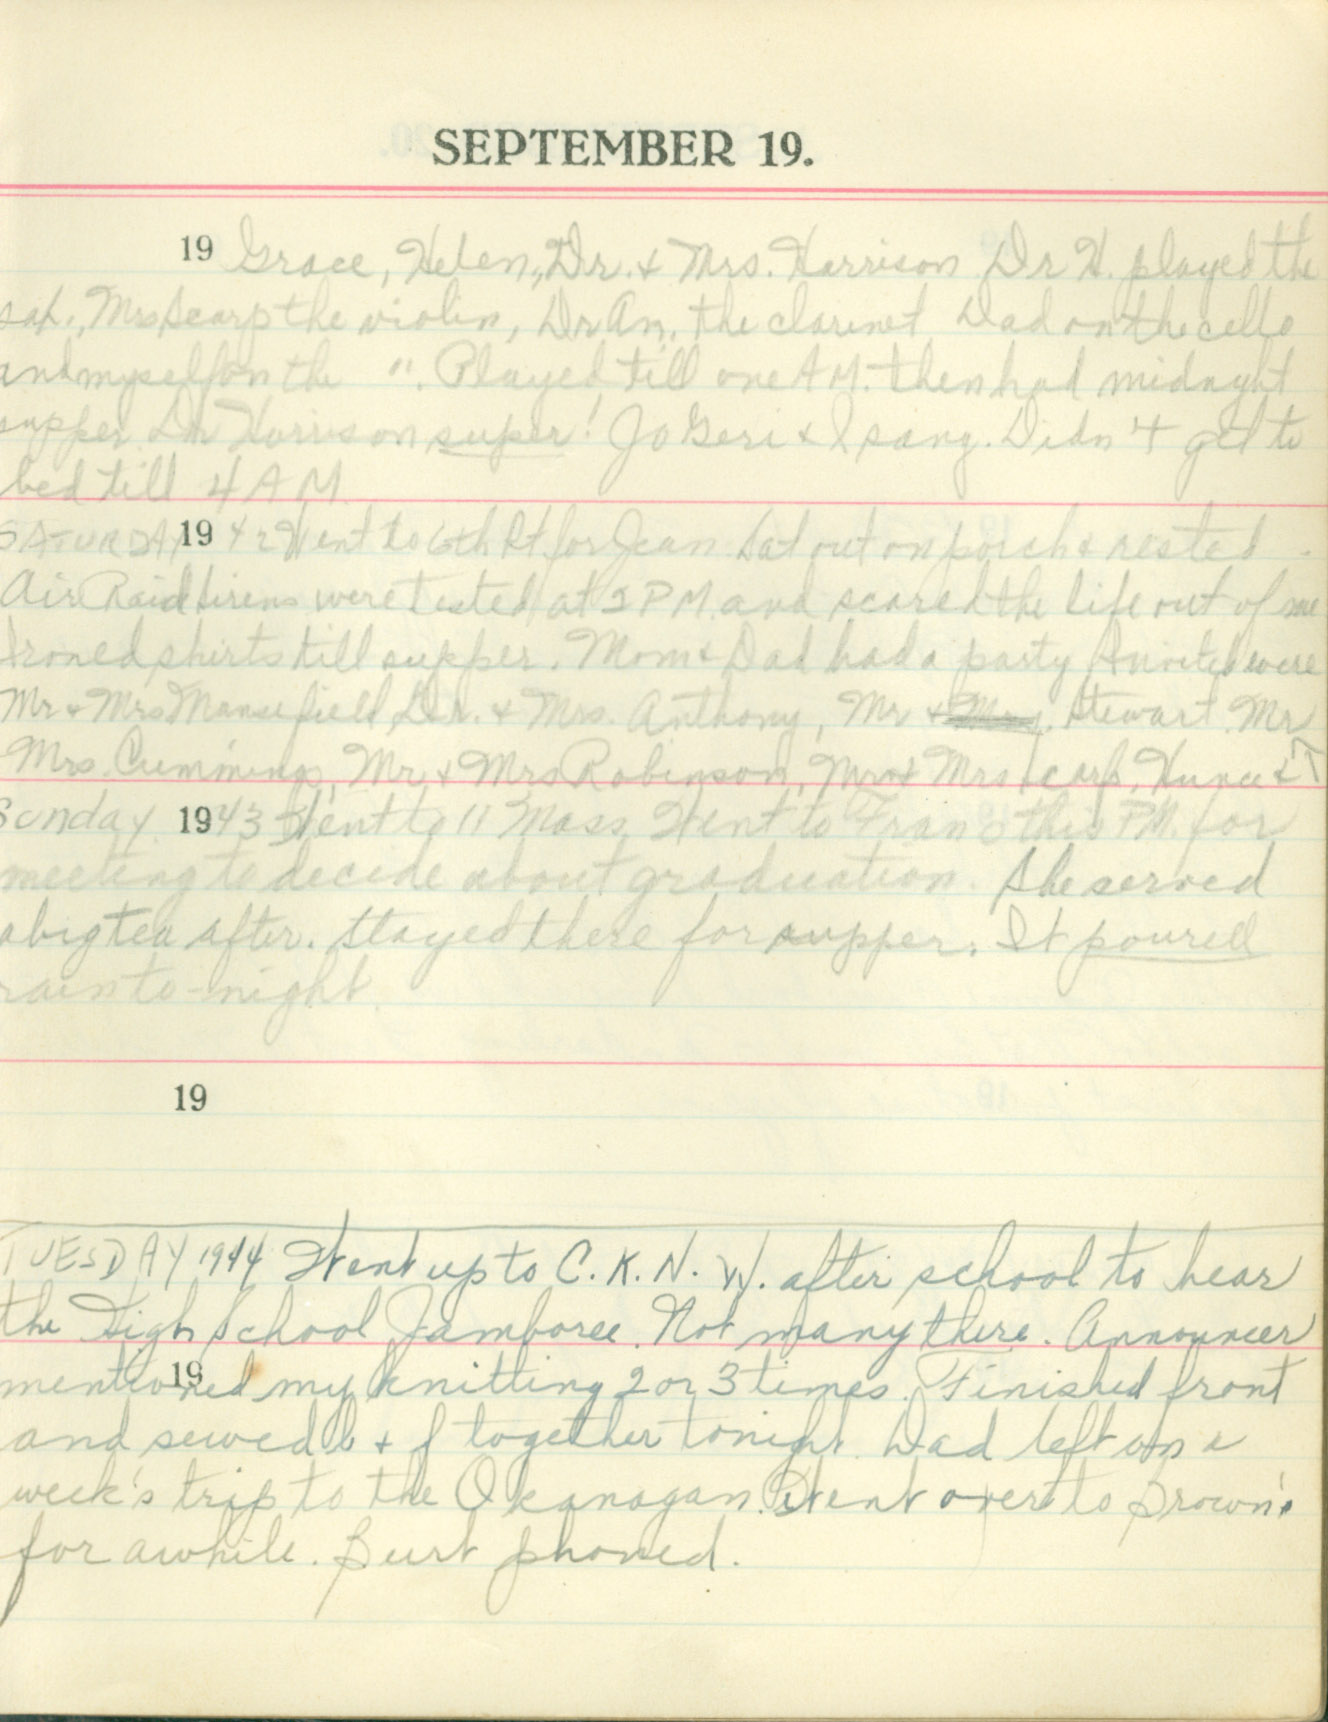 SEPTEMBER 19.
19 Grace, Helen, Dr. & Mrs. Harrison Dr H. played the
sax., Mrs Scarp the violin, Dr An. the clarinet Dad on the cello
and myself on the ". Played till one A.M. then had midnight
supper Dr Harrison super! Jo Geri & I sang. Didn't get to
bed till 4 A M
SATURDAY 19 42 Went to 6th St for Jean. Sat out on porch & rested.
Air Raid sirens were tested at 2 P M. and scared the life out of me
Ironed shirts till supper. Mom & Dad had a party Invited were
Mr & Mrs Mansefield Dr. & Mrs. Anthony, Mr & Stewart. Mr
Mrs. Cummings, Mr & Mrs Robinson, Mr & Mrs Scarp, &
Sunday 1943 Went to 11 Mass. Went to Fran's this P.M. for
meeting to decide about graduation. She served
a big tea after. Stayed there for supper. It poured
rain to-night.
19
TUESDAY 1944 Went up to C.K.N.W. after school to hear
the High School Jamboree. Not many there. Announcer
19
mentioned my knitting 2 or 3 times. Finished front
and sewed b & f together tonight. Dad left on a
week's trip to the Okanagan. Went over to Brown's
for awhile. Burt phoned.